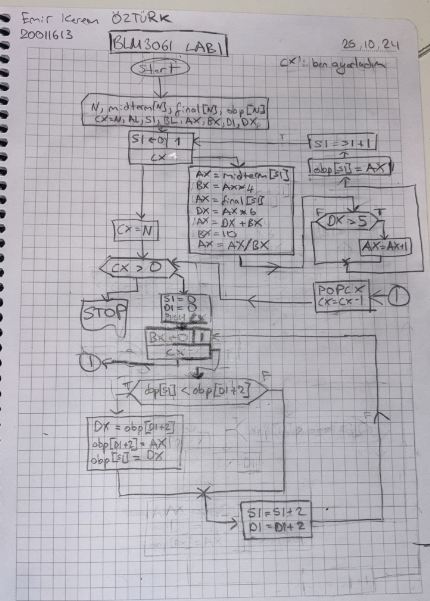 Emir Kerem ÖZTÜRK
20011613
BLM3061 LAB1
25.10.24
Start
CX'i ben ayarladım
N, midterm[N], final[N], obp[N]
CX=N, AL, SI, BL, AX, BX, DI, DX
SI ← 0 1
CX
T
SI = SI+1
obp[SI] = AX
AX = midterm[SI]
BX = AX*4
AX = final[SI]
DX = AX*6
AX = DX+BX
BX = 10
AX = AX/BX
F
DX > 5
T
AX=AX+1
CX=N
CX > 0
STOP
SI = 0
DI = 0
POP CX
CX=CX-1
1
BX=0 1
CX
1
T
obp[SI] < obp[DI+2]
F
DX = obp[DI+2]
obp[DI+2] = AX
obp[SI] = DX
SI = SI+2
DI = DI+2